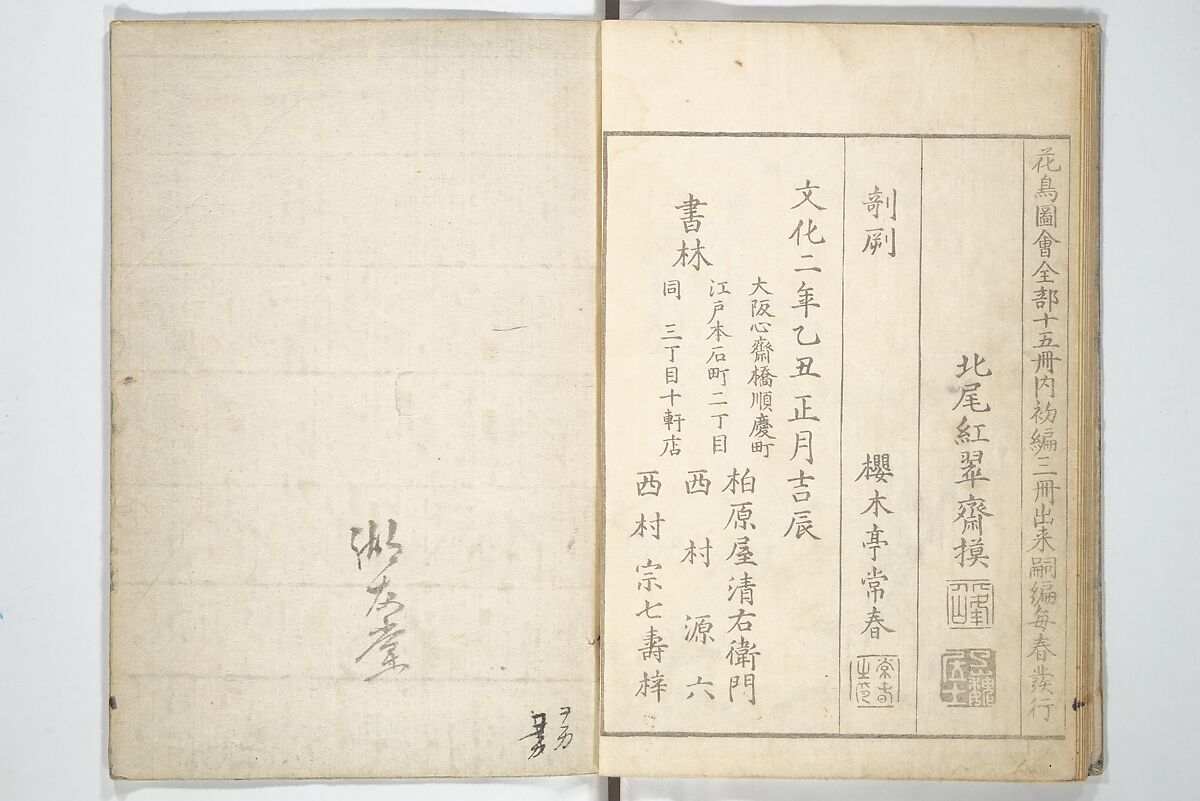 花鳥圖會全部十五冊内初編三冊出来嗣編毎春發行
北尾紅翠齋摸
剞劂
櫻木亭常春
常春之印
文化二年乙丑正月吉辰
書林
大阪心齋橋順慶町
柏原屋清右衛門
江戸本石町二丁目
西村源六
同 三丁目十軒店
西村宗七壽梓